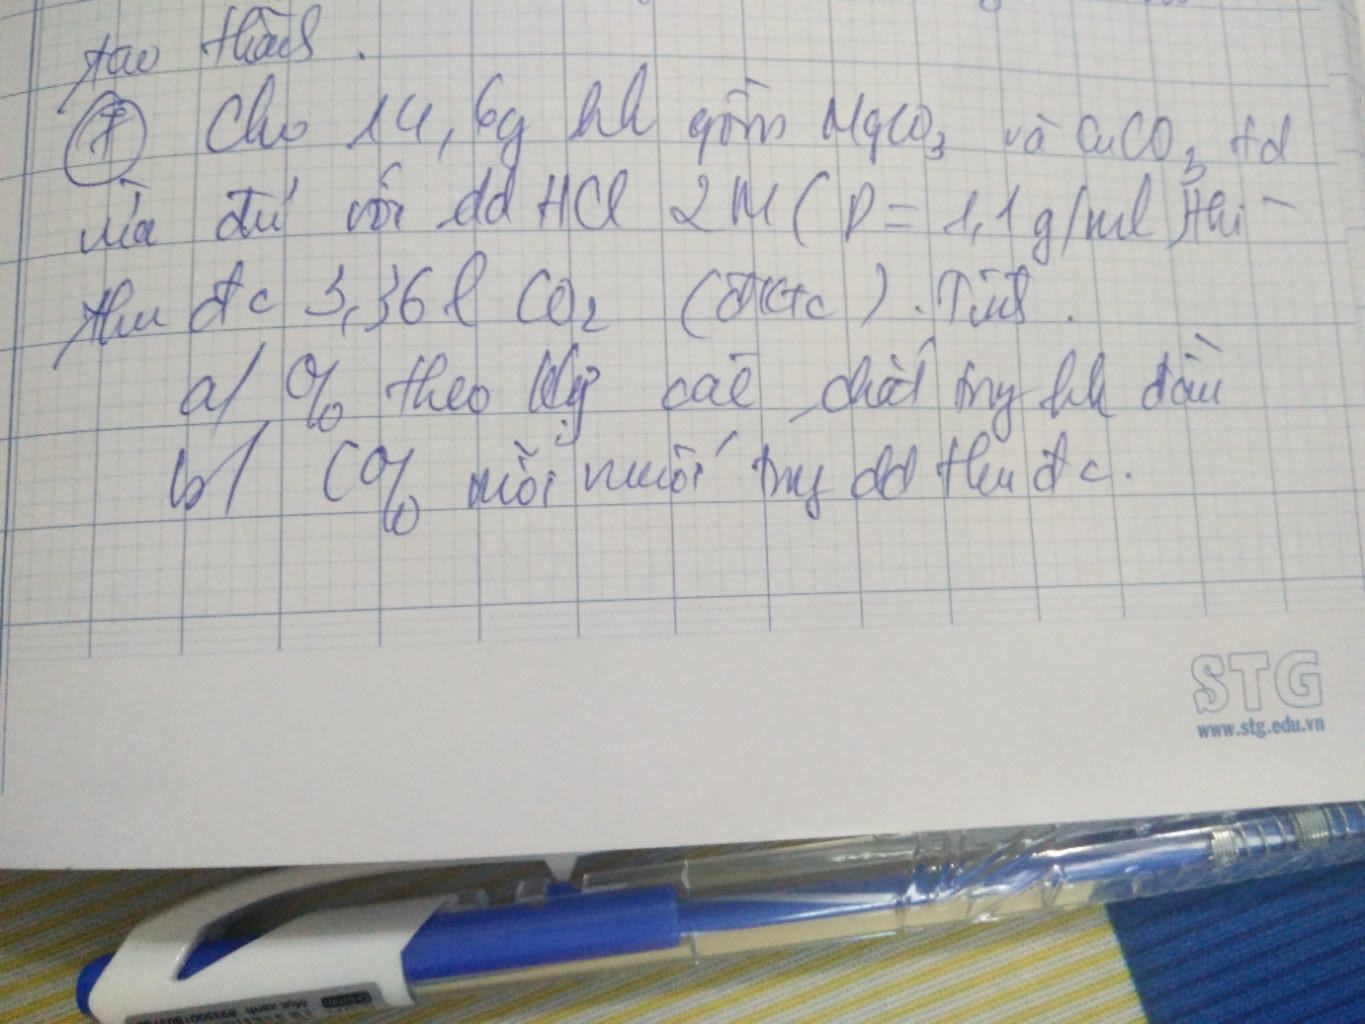 tạo thành.
⑦ Cho 14,6g hh gồm MgCO3 và CuCO3 td
vừa đủ với dd HCl 2M (D = 1,1g/ml) thì
thu đc 3,36 l CO2 (đktc). Tính.
a/ % theo klg các chất trong hh đầu
b/ C% mỗi muối trong dd thu đc.
STG
www.stg.edu.vn
Mực xanh